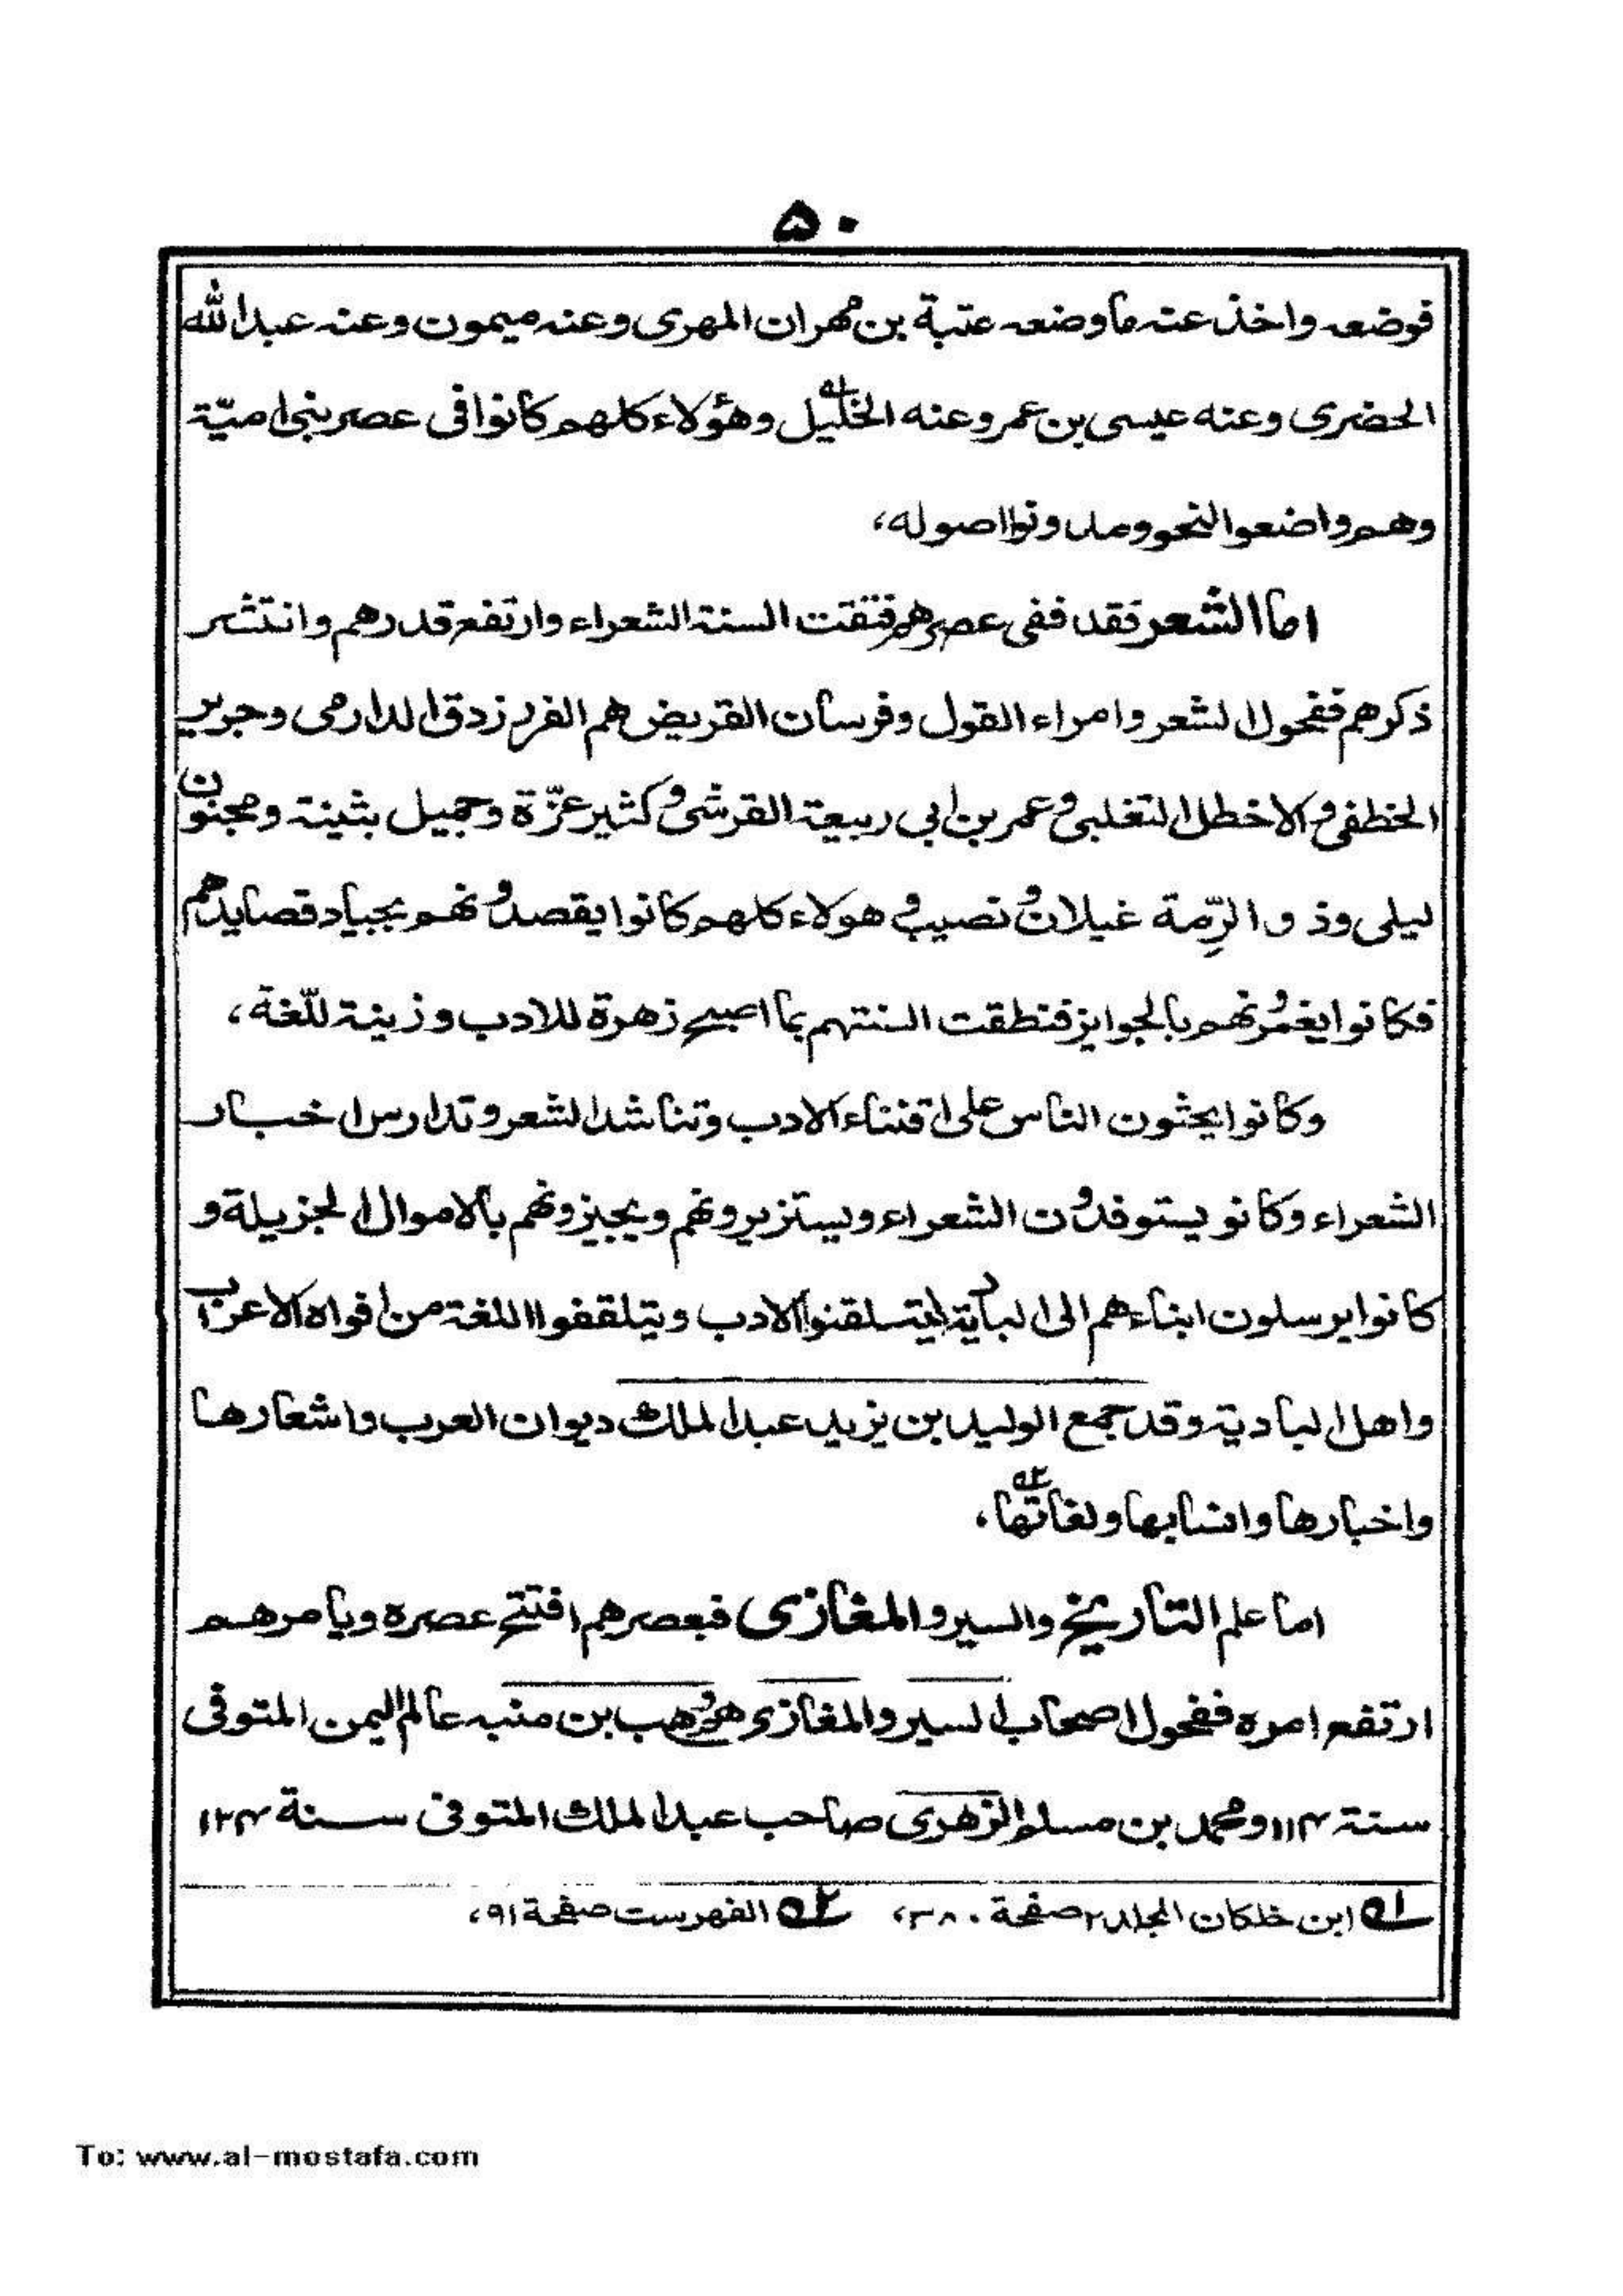 ۵۰
فوضعه واخذ عنه ما وضعه عتبة بن مهران المهرى وعنه ميمون وعنه عبد الله
الحضرى وعنه عيسى بن عمر وعنه الخليل ؎۱ وهؤلاء كلهم كانوا فى عصر بنى اميّة
وهم واضعوا النحو ومدونوا اصوله،
اما الشعر فقد ففى عصرهم فتقت السنة الشعراء وارتفع قدرهم وانتشر
ذكرهم ففحول الشعر وامراء القول وفرسان القريض هم الفرزدق الدارمى وجرير
الخطفى والاخطل التغلبى وعمر بن ابى ربيعة القرشى وكثير عزّة وجميل بثينة ومجنون
ليلى وذو الرِّمة غيلان ونصيب وهولاء كلهم كانوا يقصدونهم بجياد قصايدهم
فكانوا يغمرونهم بالجوايز فنطقت السنتهم بما اصبح زهرة للادب وزينة للّغة،
وكانوا يحثون الناس على اقتناء الادب وتناشد الشعر وتدارس اخبار
الشعراء وكانو يستوفدون الشعراء ويستزيرونهم ويجيزونهم بالاموال الجزيلة و
كانوا يرسلون ابناءهم الى البادية ليتسلقنوا الادب ويتلقفوا اللغة من افواه الاعراب
واهل البادية وقد جمع الوليد بن يزيد عبد الملك ديوان العرب واشعارها
واخبارها وانسابها ولغاتها ؎۲،
اما علم التاريخ والسير والمغازى فبعصرهم افتتح عصره وبامرهم
ارتفع امره ففحول اصحاب السير والمغازى هم وهب بن منبه عالم اليمن المتوفى
سنة ۱۱۴ ومحمد بن مسلم الزهرى صاحب عبد الملك المتوفى سنة ۱۲۴
؎۱ ابن خلكان المجلد ۲ صفحة ۳۸۰، ؎۲ الفهرست صفحة ۹۱،
To: www.al-mostafa.com